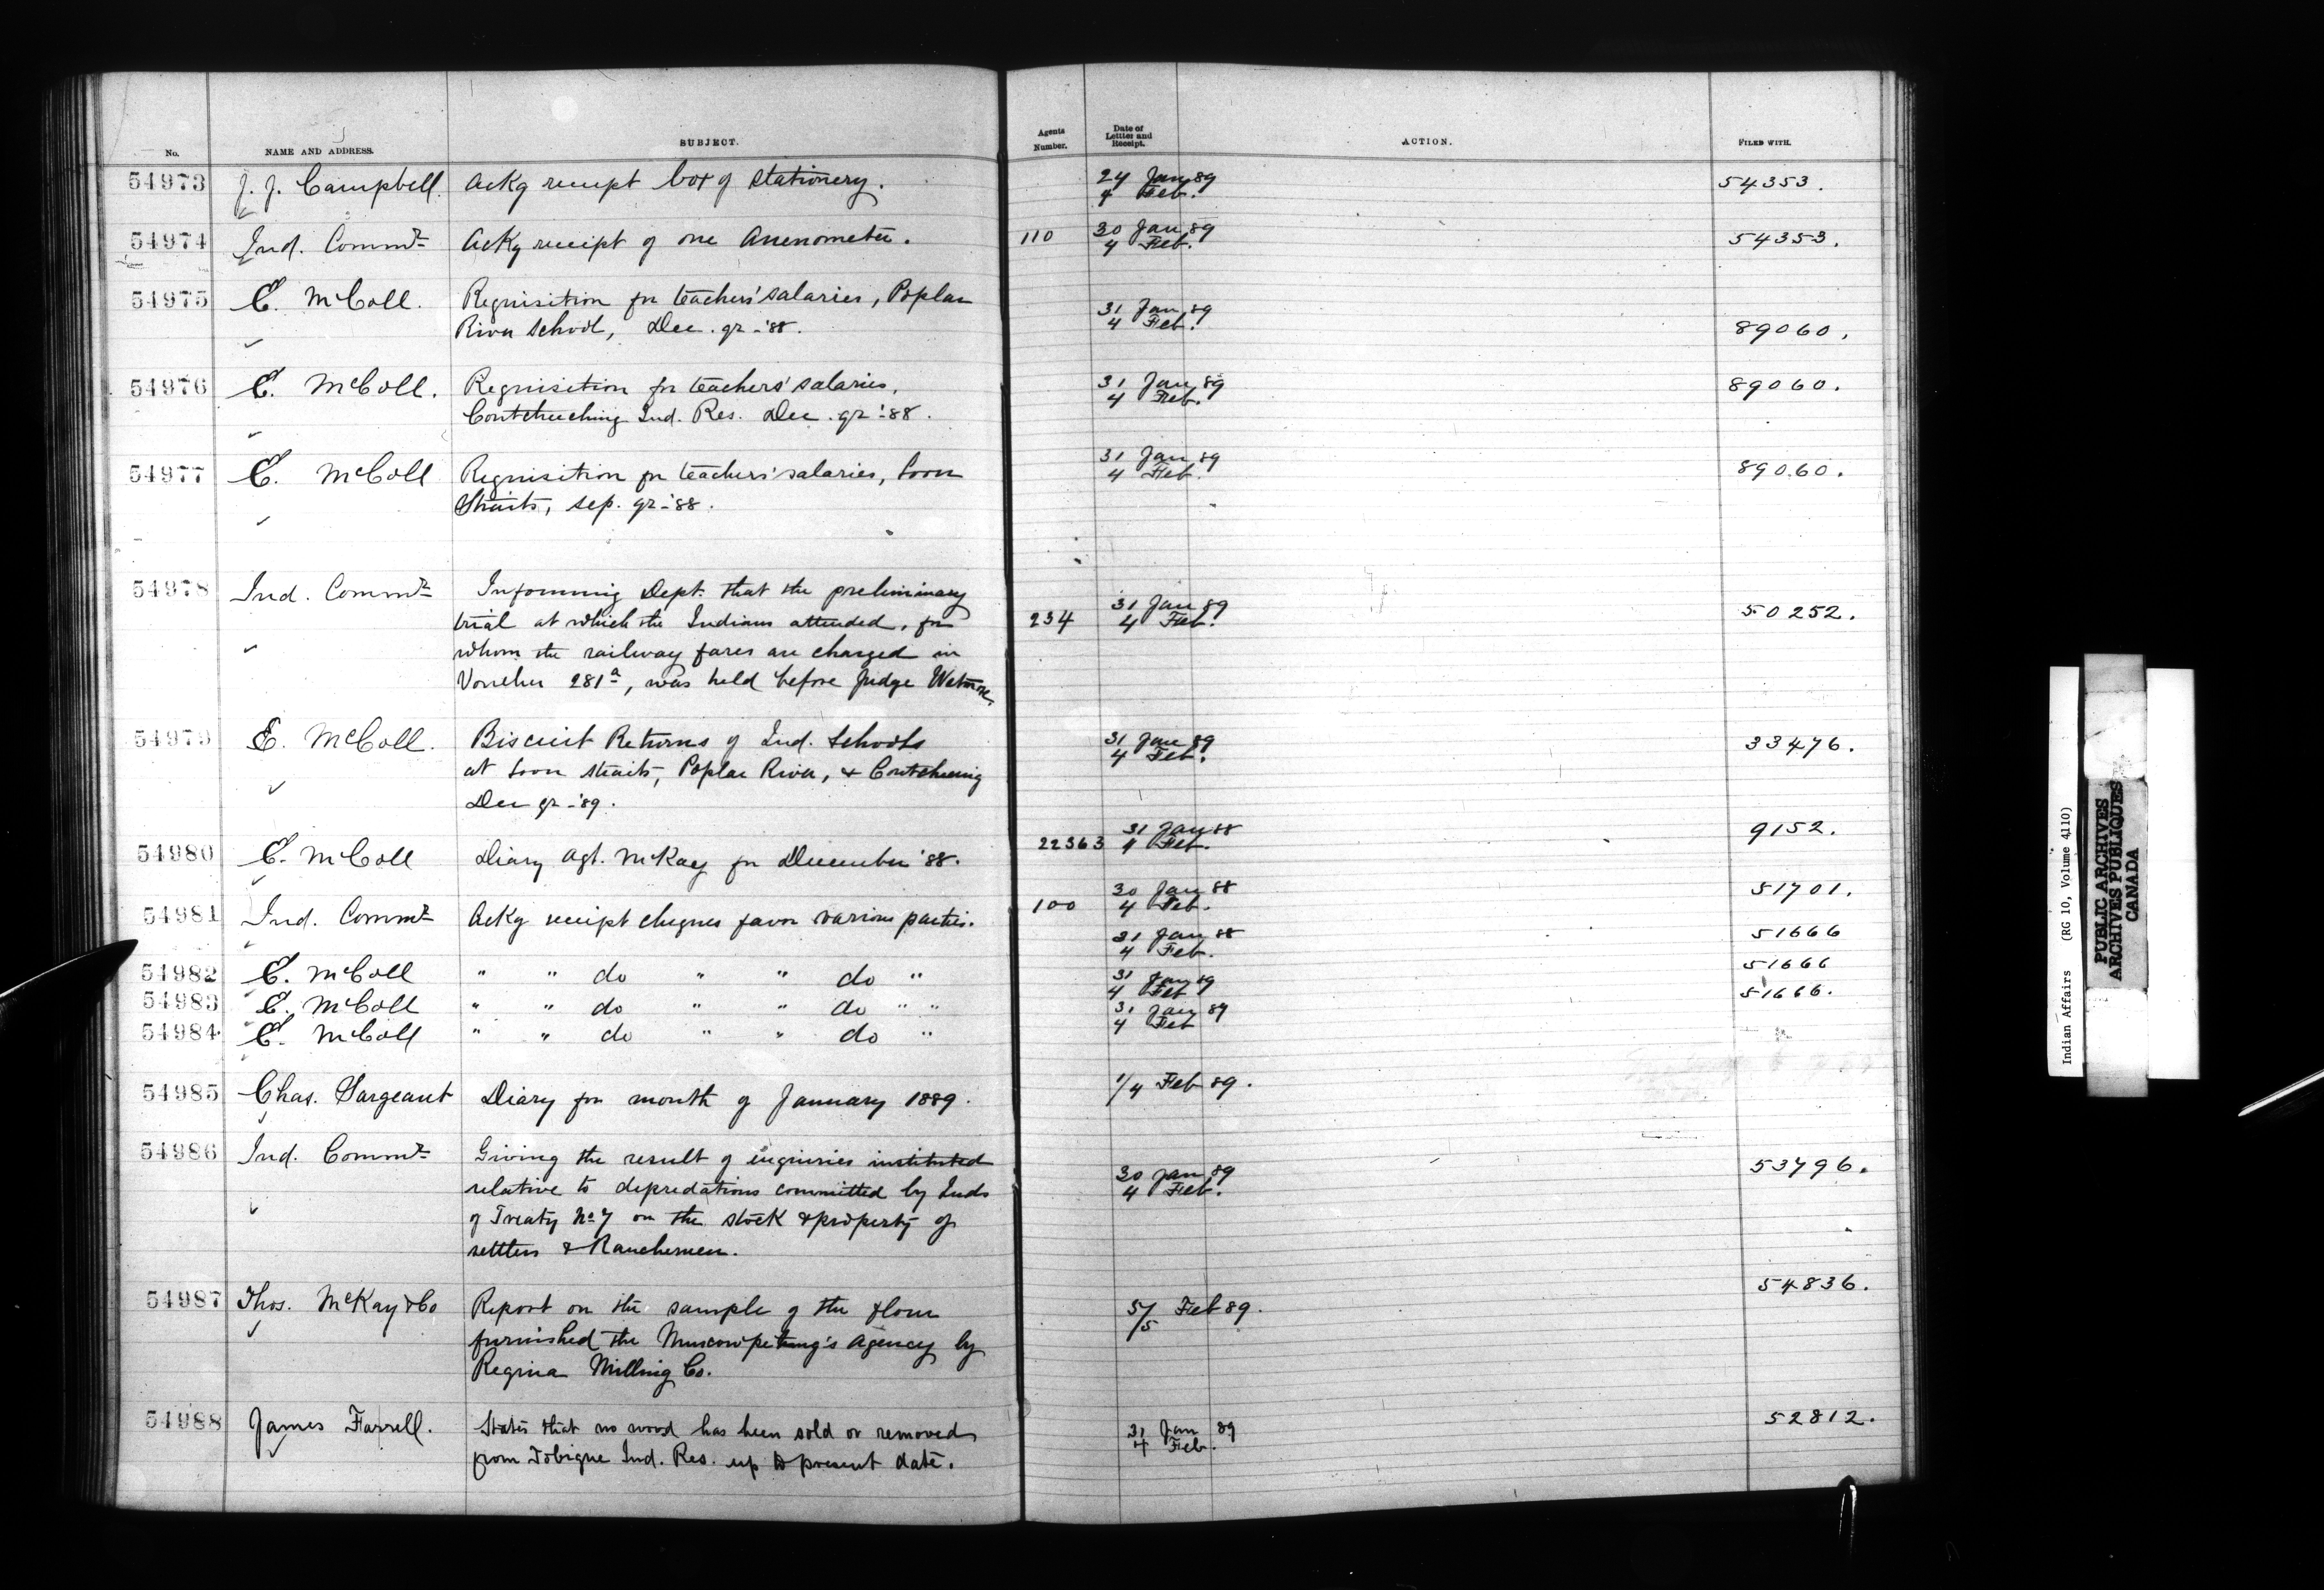 No. NAME AND ADDRESS. SUBJECT. Agents Number. Date of Letter and Receipt. ACTION. FILED WITH.
54973 J. J. Campbell. Ackg receipt box of stationery. 24 Jan 89 54353.
4 Feb.
54974 Ind. Commr Ackg receipt of one Anenometer. 110 30 Jan 89 54353.
4 Feb.
54975 E. McColl. Requisition for teachers' salaries, Poplar 31 Jan 89
River School, Dec. qr - '88. 4 Feb. 89060.
54976 E. McColl. Requisition for teachers' salaries, 31 Jan 89 89060.
Coutcheeching Ind. Res. Dec. qr - '88. 4 Feb.
54977 E. McColl Requisition for teachers' salaries, Loon 31 Jan 89 89060.
Straits, Sep. qr - '88. 4 Feb.
54978 Ind. Commr Informing Dept. that the preliminary 31 Jan 89 50252.
trial at which the Indians attended, for 234 4 Feb.
whom the railway fares are charged in
Voucher 281a, was held before Judge Wetmore
54979 E. McColl. Biscuit Returns of Ind. Schools 31 Jan 89 33476.
at Loon Straits, Poplar River, & Coutcheeing 4 Feb.
Dec qr - '89.
54980 E. McColl Diary Agt. McKay for December '88. 22363 31 Jan 88 9152.
4 Feb.
54981 Ind. Commr Ackg receipt cheques favor various parties. 100 30 Jan 88 51701.
4 Feb.
54982 E. McColl " " do " " do " 31 Jan 88 51666
4 Feb.
54983 E. McColl " " do " " do " " 31 Jan 89 51666
4 Feb
54984 E. McColl " " do " " do " 31 Jan 89 51666.
4 Feb
54985 Chas. Sargeant Diary for month of January 1889. 1/4 Feb 89.
54986 Ind. Commr Giving the result of enquiries instituted 30 Jan 89 53796.
relative to depredations committed by Inds 4 Feb.
of Treaty No 7 on the stock & property of
settlers & Ranchemen.
54987 Thos. McKay & Co Report on the sample of the flour 5/5 Feb 89. 54836.
furnished the Muscowpetung's Agency by
Regina Milling Co.
54988 James Farrell. States that no wood has been sold or removed 31 Jan 89 52812.
from Tobique Ind. Res. up to present date. 4 Feb.
Indian Affairs (RG 10, Volume 4110)
PUBLIC ARCHIVES
ARCHIVES PUBLIQUES
CANADA